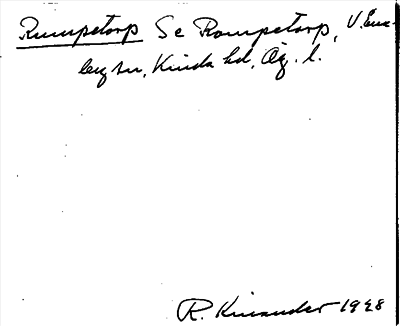 Rumpetorp Se Rompetorp, V. Ene-
by sn, Kinda hd, Ög. l.
R. Kinander 1928